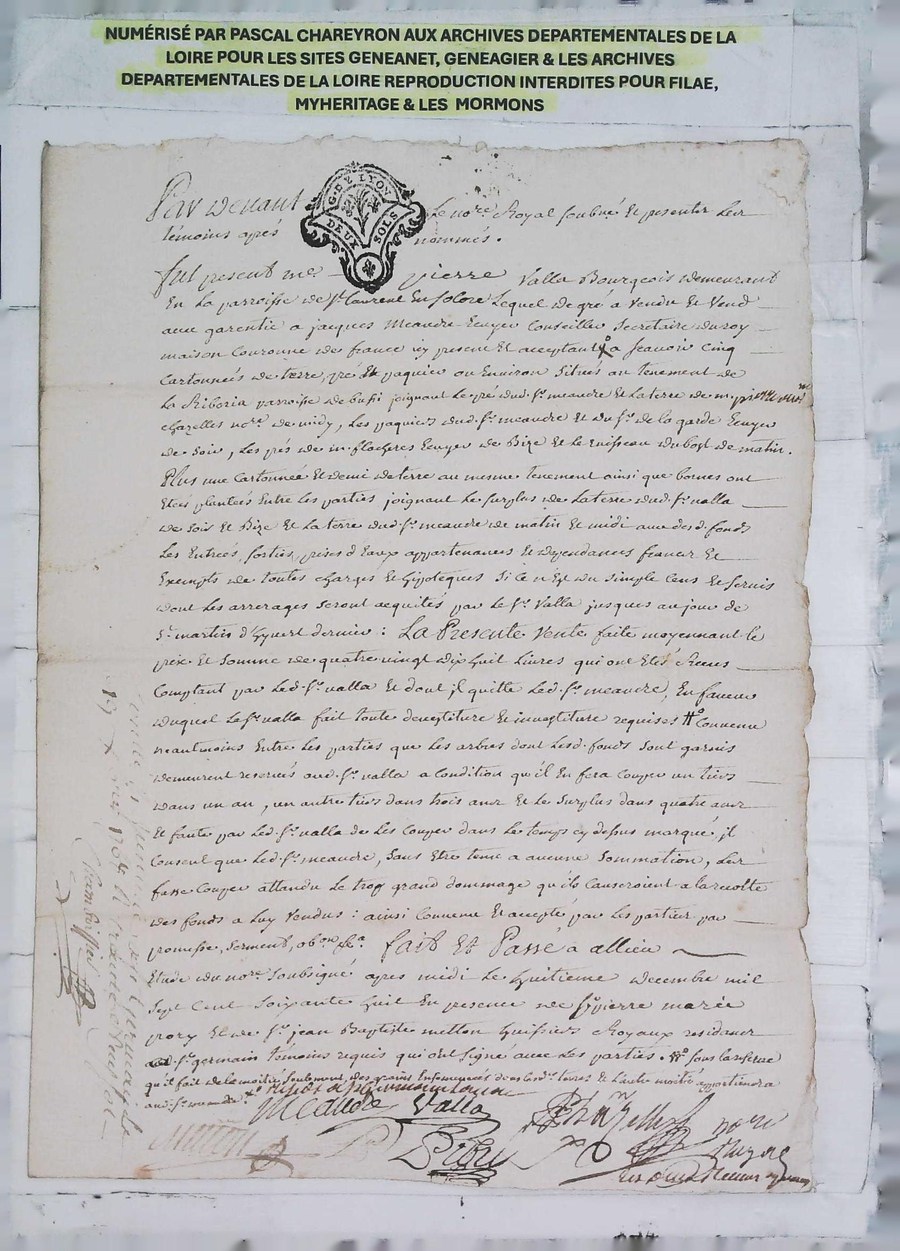 NUMÉRISÉ PAR PASCAL CHAREYRON AUX ARCHIVES DEPARTEMENTALES DE LA
LOIRE POUR LES SITES GENEANET, GENEAGIER & LES ARCHIVES
DEPARTEMENTALES DE LA LOIRE REPRODUCTION INTERDITES POUR FILAE,
MYHERITAGE & LES MORMONS
G. DE LYON
DEUX SOLS
Par devant Le nore Royal soubné Et presenter Leur
témoins après nommés.
fut present me pierre Valla Bourgeois demeurant
En La parroisse de st Laurent En solore Lequel de gré a Vendu Et Vend
avec garentie a jacques Meandre Ecuyer Conseiller Secretaire du roy
maison Couronne de france icy present Et acceptant a scavoir Cinq
Cartonnées de terre, pré Et paquier ou Environ Situés au tenement de
La Riberia parroisse de bussi joignant Le pré dud. sr meandre Et La terre de me pierre
chazelles nore de midy, Les paquiers dud. sr meandre Et du sr de la garde Ecuyer
de soir, Les prés de m. flacheres Ecuyer de Bize Et Le Ruisseau du bost de matin.
Plus une Cartonnée Et demi de terre au mesme tenement ainsi que bornes ont
Etés plantées Entre Les parties joignant Le surplus de La terre dud. sr valla
de soir Et Bize Et La terre dud. sr meandre de matin Et midi avec desd. fonds
Les Entrées, sorties, prises d'Eaux appartenances Et dependances francs Et
Exempts de toutes charges Et hipoteques Si Ce n'Est du simple Cens Et servis
dont Les arrerages seront acquités par Le sr Valla jusques au jour de
st martin d'hyvert dernier : La Presente Vente faite moyennant Le
prix Et Somme de quatre vingt dix huit Livres qui ont Etés Reeus
Comptant par Led. sr valla Et dont il quitte Led. sr meandre, En faveur
duquel Le sr valla fait toute devestiture Et investiture requises Convenu
neantmoins Entre Les parties que Les arbres dont Lesd. fonds sont garnis
demeurent reservés aud. sr valla a Condition qu'il En fera Couper un tiers
dans un an, un autre tiers dans trois ans Et Le surplus dans quatre ans
Et faute par Led. sr valla de Les Couper dans Le temps cy dessus marqué, il
Consent que Led. sr meandre, sans Etre tenu a aucune Sommation, Les
fasse Couper attendu Le trop grand dommage qu'ils Causeroient a la recolte
des fonds a Luy Vendus : ainsi Convenu Et accepté par Les parties par
promesse, serment, obon &a. fait Et Passé a allieu
Etude du nore Soubsigné apres midi Le huitieme decembre mil
Sept Cent Soixante huit En presence de sr pierre marée
prory Et de sr jean Baptiste metton huissiers Royaux residents
st germain témoins requis qui ont signé avec Les parties. sous la reserve
qu'il fait de la moitié seulement des grains Ensemencés dans Lesd. terres Et L'autre moitié appartiendra
aud. sr meandre
Meandre Valla
nore
Royal